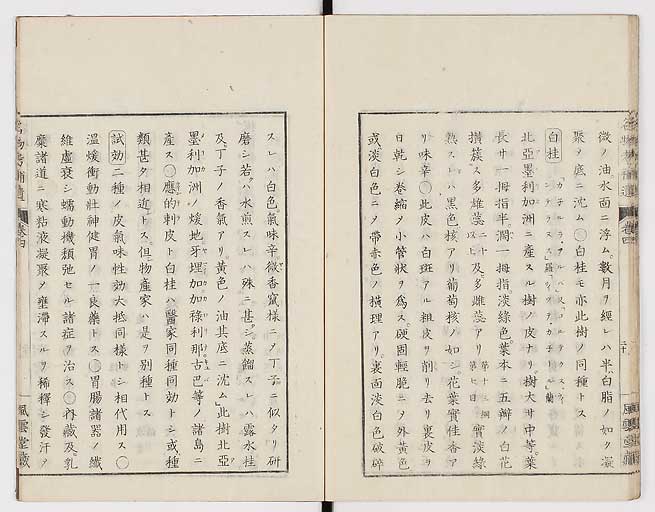 微ノ油水面ニ浮ム。數月ヲ經レハ半ハ白脂ノ如ク凝
聚シ底ニ沈ム〇白桂モ亦此樹ノ同種トス
白桂
北亞墨利加洲ニ産スル樹ノ皮ナリ。樹大サ中等。葉
長サ一拇指半濶一拇指淡綠色。葉本ニ五瓣ノ白花
攅簇ス多雄蕊二十以上及多雌蕊アリ第十三綱第七目實淡綠
熟スレハ黑色核アリ葡萄核ノ如シ花葉實佳香ア
リ味辛〇此皮ハ白斑アル粗皮ヲ削リ去リ裏皮ヲ
日乾シ卷縮ノ小管狀ヲ爲ス。硬固輕脆ニノ外黃色
或淡白色ニノ帶赤色ノ横理アリ。裏面淡白色破碎
スレハ白色氣味辛微香竄様ニノ丁子ニ似タリ研
磨シ若ハ水煎スレハ殊ニ甚シ。蒸餾スレハ露水桂
及丁子ノ香氣アリ。黃色ノ油其底ニ沈ム此樹北亞
墨利加洲ノ煖地牙埋加加祿利那古巴等ノ諸島ニ
産ス〇應的刺皮ト白桂ハ醫家同種同効トシ或種
類甚タ相近トス。但物產家ハ是ヲ別種トス
試効二種ノ皮氣味性効大抵同様トシ相代用ス〇
溫煖衝動壯神健胃ノ一良藥トス〇胃腸諸器ノ纖
維虛衰シ蠕動機頽弛セル諸症ヲ治ス〇再藏及乳
糜諸道ニ寒粘液凝聚ノ壅滯スルヲ稀釋シ發汗ヲ
卷四
風雲堂藏